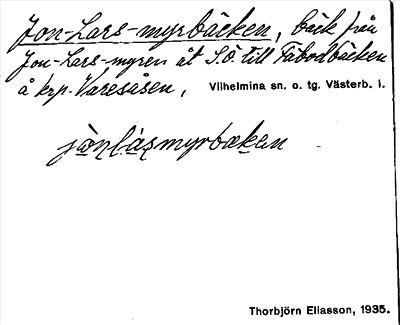 Jon-Lars-myrbäcken, bäck från
Jon-Lars-myren åt S.Ö. till Fäbodbäcken
å krp. Varesåsen, Vilhelmina sn. o. tg. Västerb. l.
jònlásmyrbæken
Thorbjörn Eliasson, 1935.